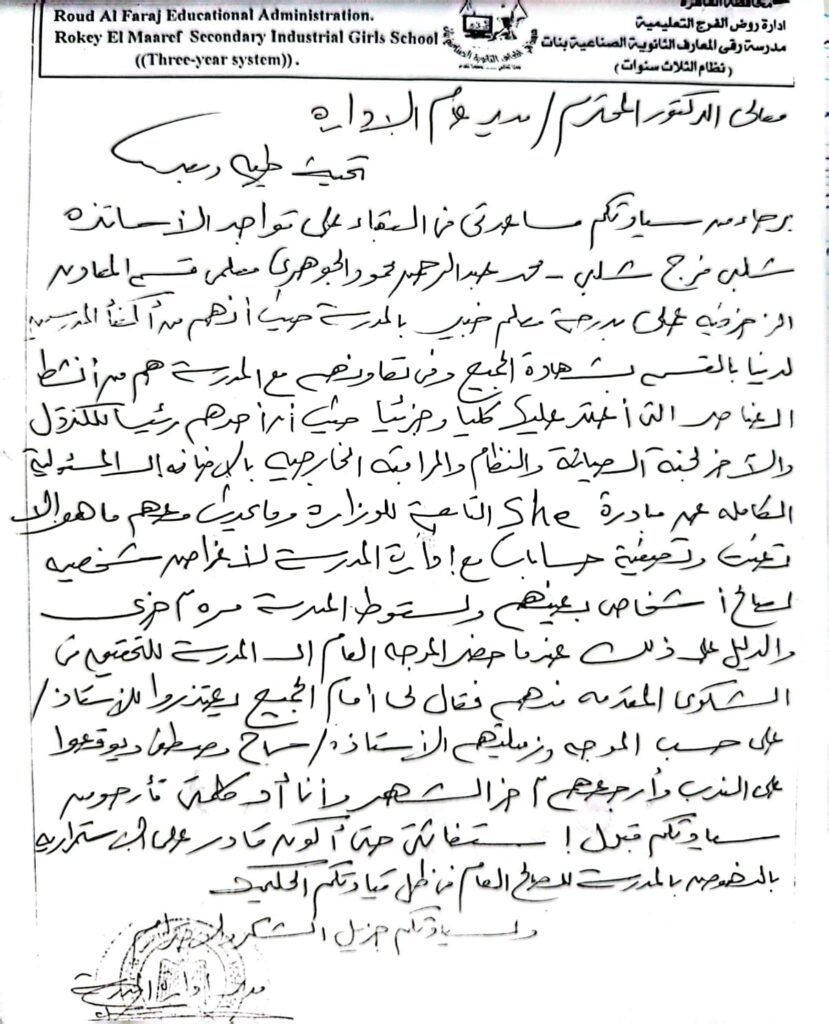 Roud Al Faraj Educational Administration.
Rokey El Maaref Secondary Industrial Girls School
((Three-year system)).
محافظة القاهرة
ادارة روض الفرج التعليمية
مدرسة رقى المعارف الثانوية الصناعية بنات
(نظام الثلاث سنوات)
معالى الدكتور المحترم / مدير عام الإدارة
تحية طيبة وبعد
برجاء من سيادتكم مساعدتى فى البقاء على تواجد الأساتذه
شلبى فرج شلبى - محمد عبدالرحمن محمود الجوهرى معلمى قسم المعادن
الزخرفية على بدرجة معلم خبير بالمدرسة حيث أنهم من أكفأ المدرسين
لدينا بالقسم بشهادة الجميع وفى تعاونهم مع المدرسة هم من أنشط
العناصر التى أعتمد عليها كلياً وجزئياً حيث أن أحدهم رئيساً للكنترول
والآخر لجنة الصيانة والنظام والمراقبة الخارجيه بالإضافه إلى المسئولية
الكامله عن مبادرة She التابعة للوزارة وما يحدث معهم ما هو إلا
تعنت وتصفية حسابات مع إدارة المدرسة لأغراض شخصيه
لصالح أشخاص بعينهم ولسقوط المدرسة مره أخرى
والدليل على ذلك عندما حضر الموجه العام إلى المدرسة للتحقيق فى
الشكوى المقدمه منهم فقال لى أمام الجميع يعتذروا للأستاذ /
على حسب الموجه وزميلتهم الأستاذه / سماح مصطفى ويوقعوا
على الندب وأرجعهم آخر الشهر وأنا أد كلمتى فأرجو من
سيادتكم قبول إستغاثتى حتى أكون قادر على الإستمرارية
بالنهوض بالمدرسة للصالح العام فى ظل قيادتكم الحكيمة
ولسيادتكم جزيل الشكر والاحترام
مدير إدارة المدرسة